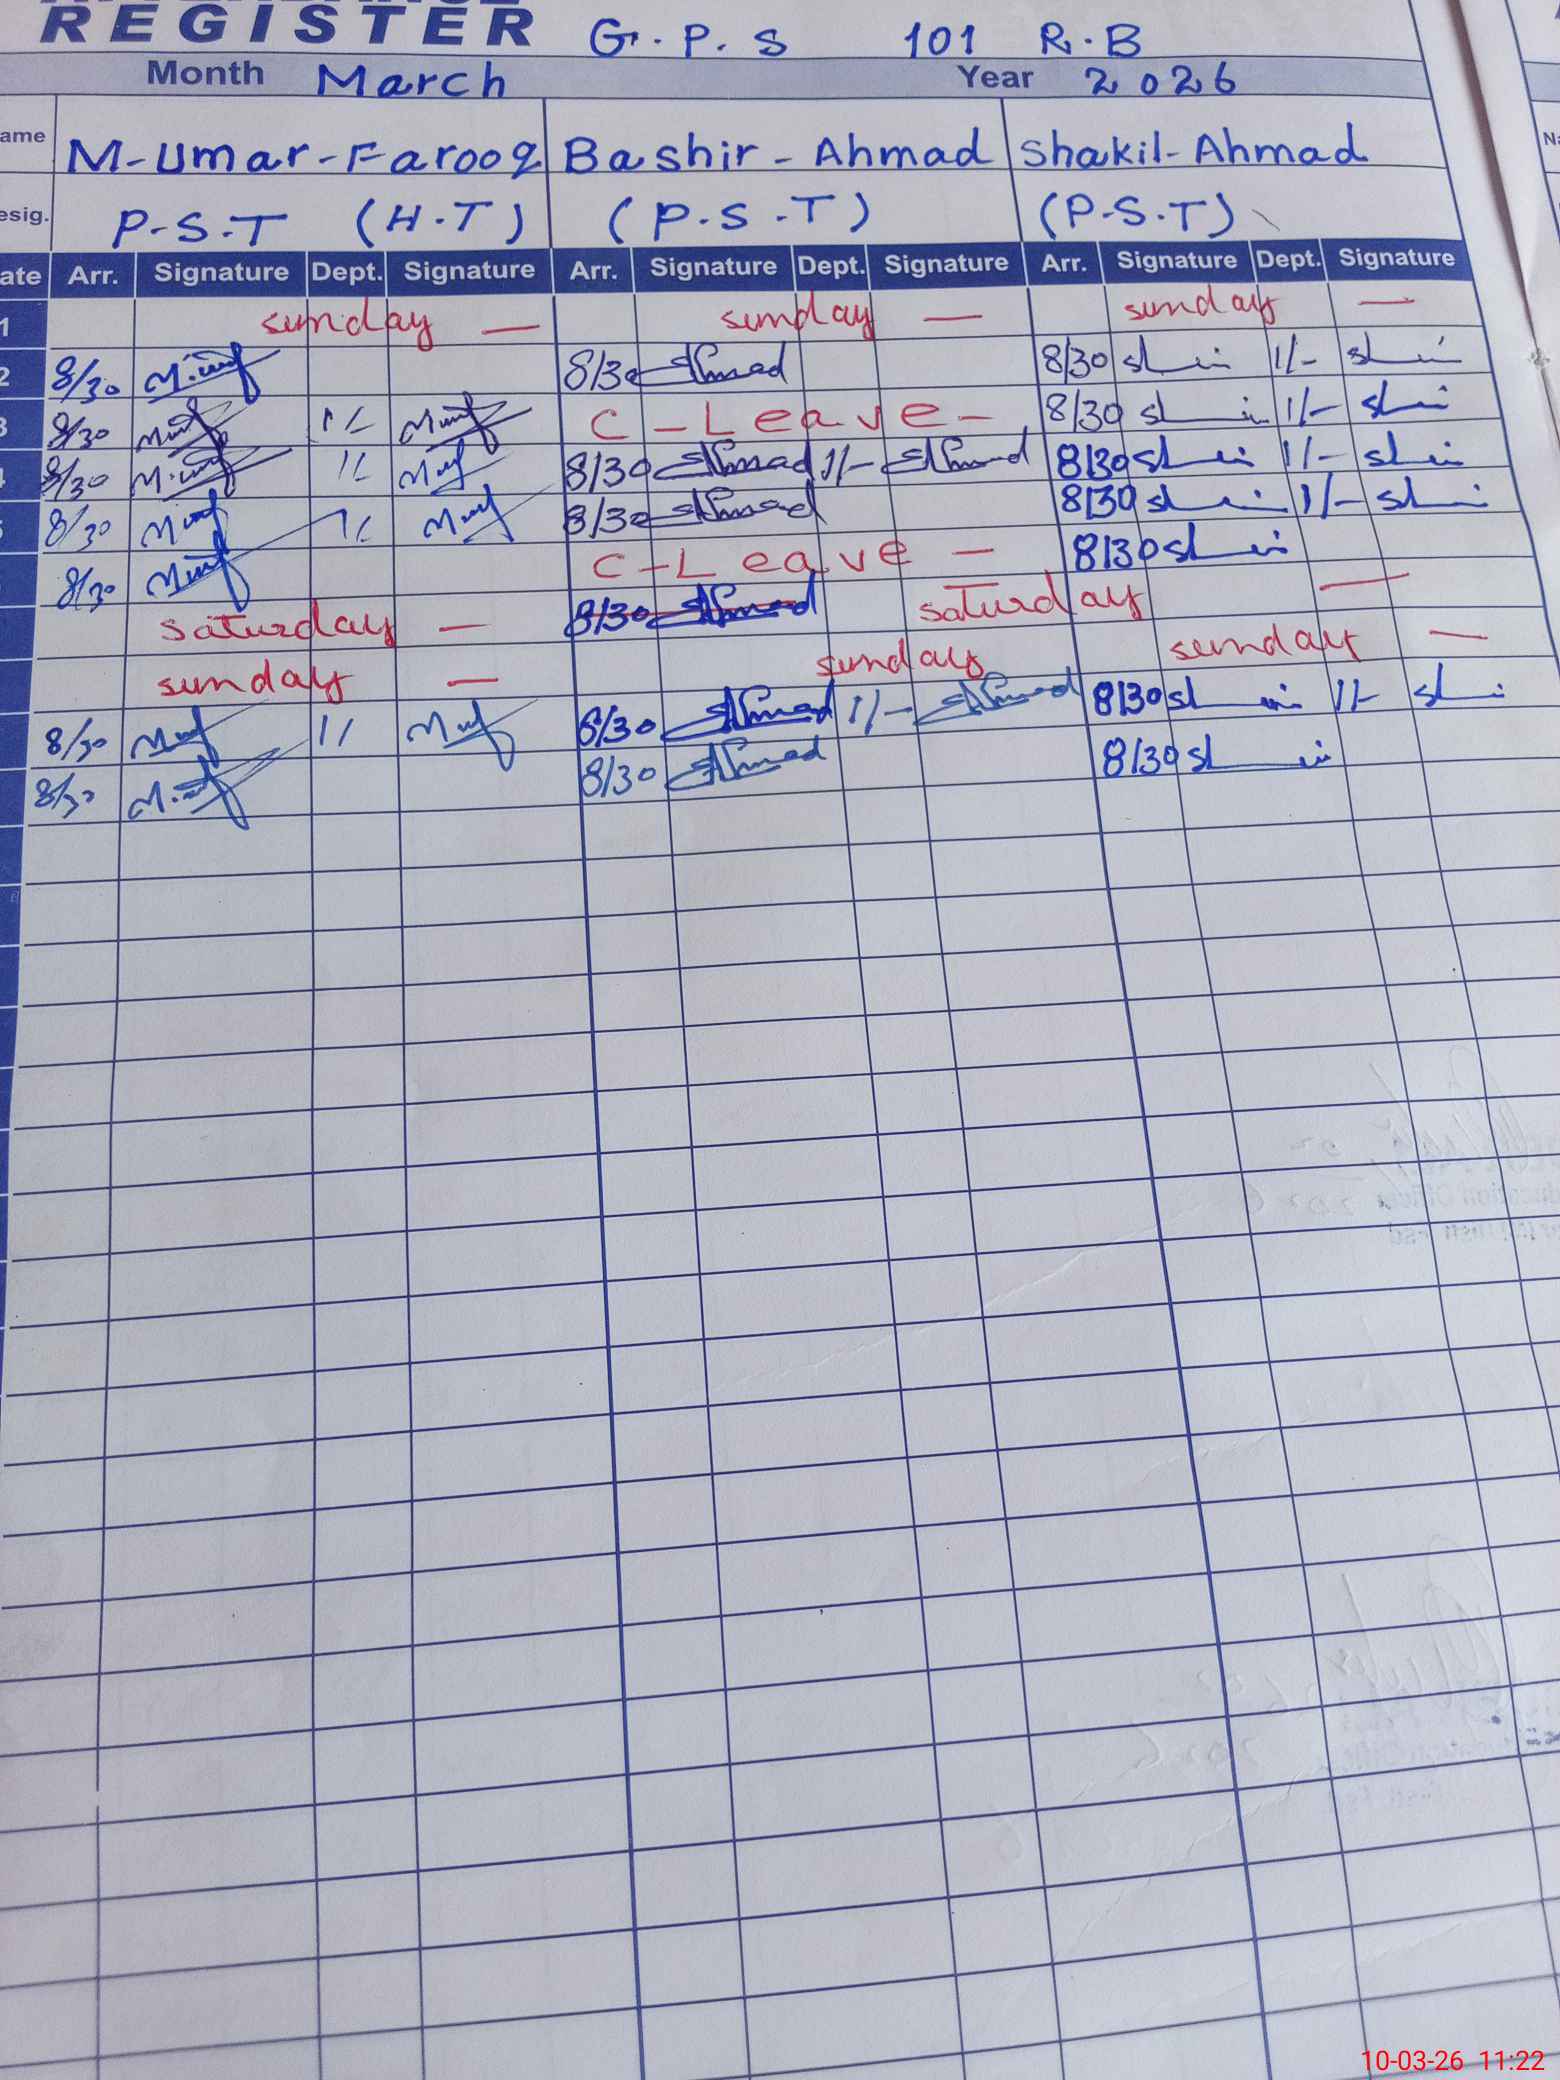 REGISTER G.P.S 101 R.B
Month March Year 2026
ame M-Umar-Farooq Bashir-Ahmad Shakil-Ahmad
esig. P-S.T (H.T) (P.S.T) (P.S.T)
ate Arr. Signature Dept. Signature Arr. Signature Dept. Signature Arr. Signature Dept. Signature
1 sunday — sunday — sunday —
2 8/30 8/30 Ahmad 8/30 1/-
3 8/30 1/- C-Leave- 8/30 1/-
8/30 1/- 8/30 Ahmad 1/- Ahmad 8/30 1/-
8/30 1/- 8/30 Ahmad 8/30 1/-
8/30 C-Leave — 8/30
saturday — 8/30 Ahmad saturday —
sunday — sunday sunday —
8/30 1/ 8/30 Ahmad 1/- Ahmad 8/30 1/-
8/30 8/30 Ahmad 8/30
10-03-26 11:22